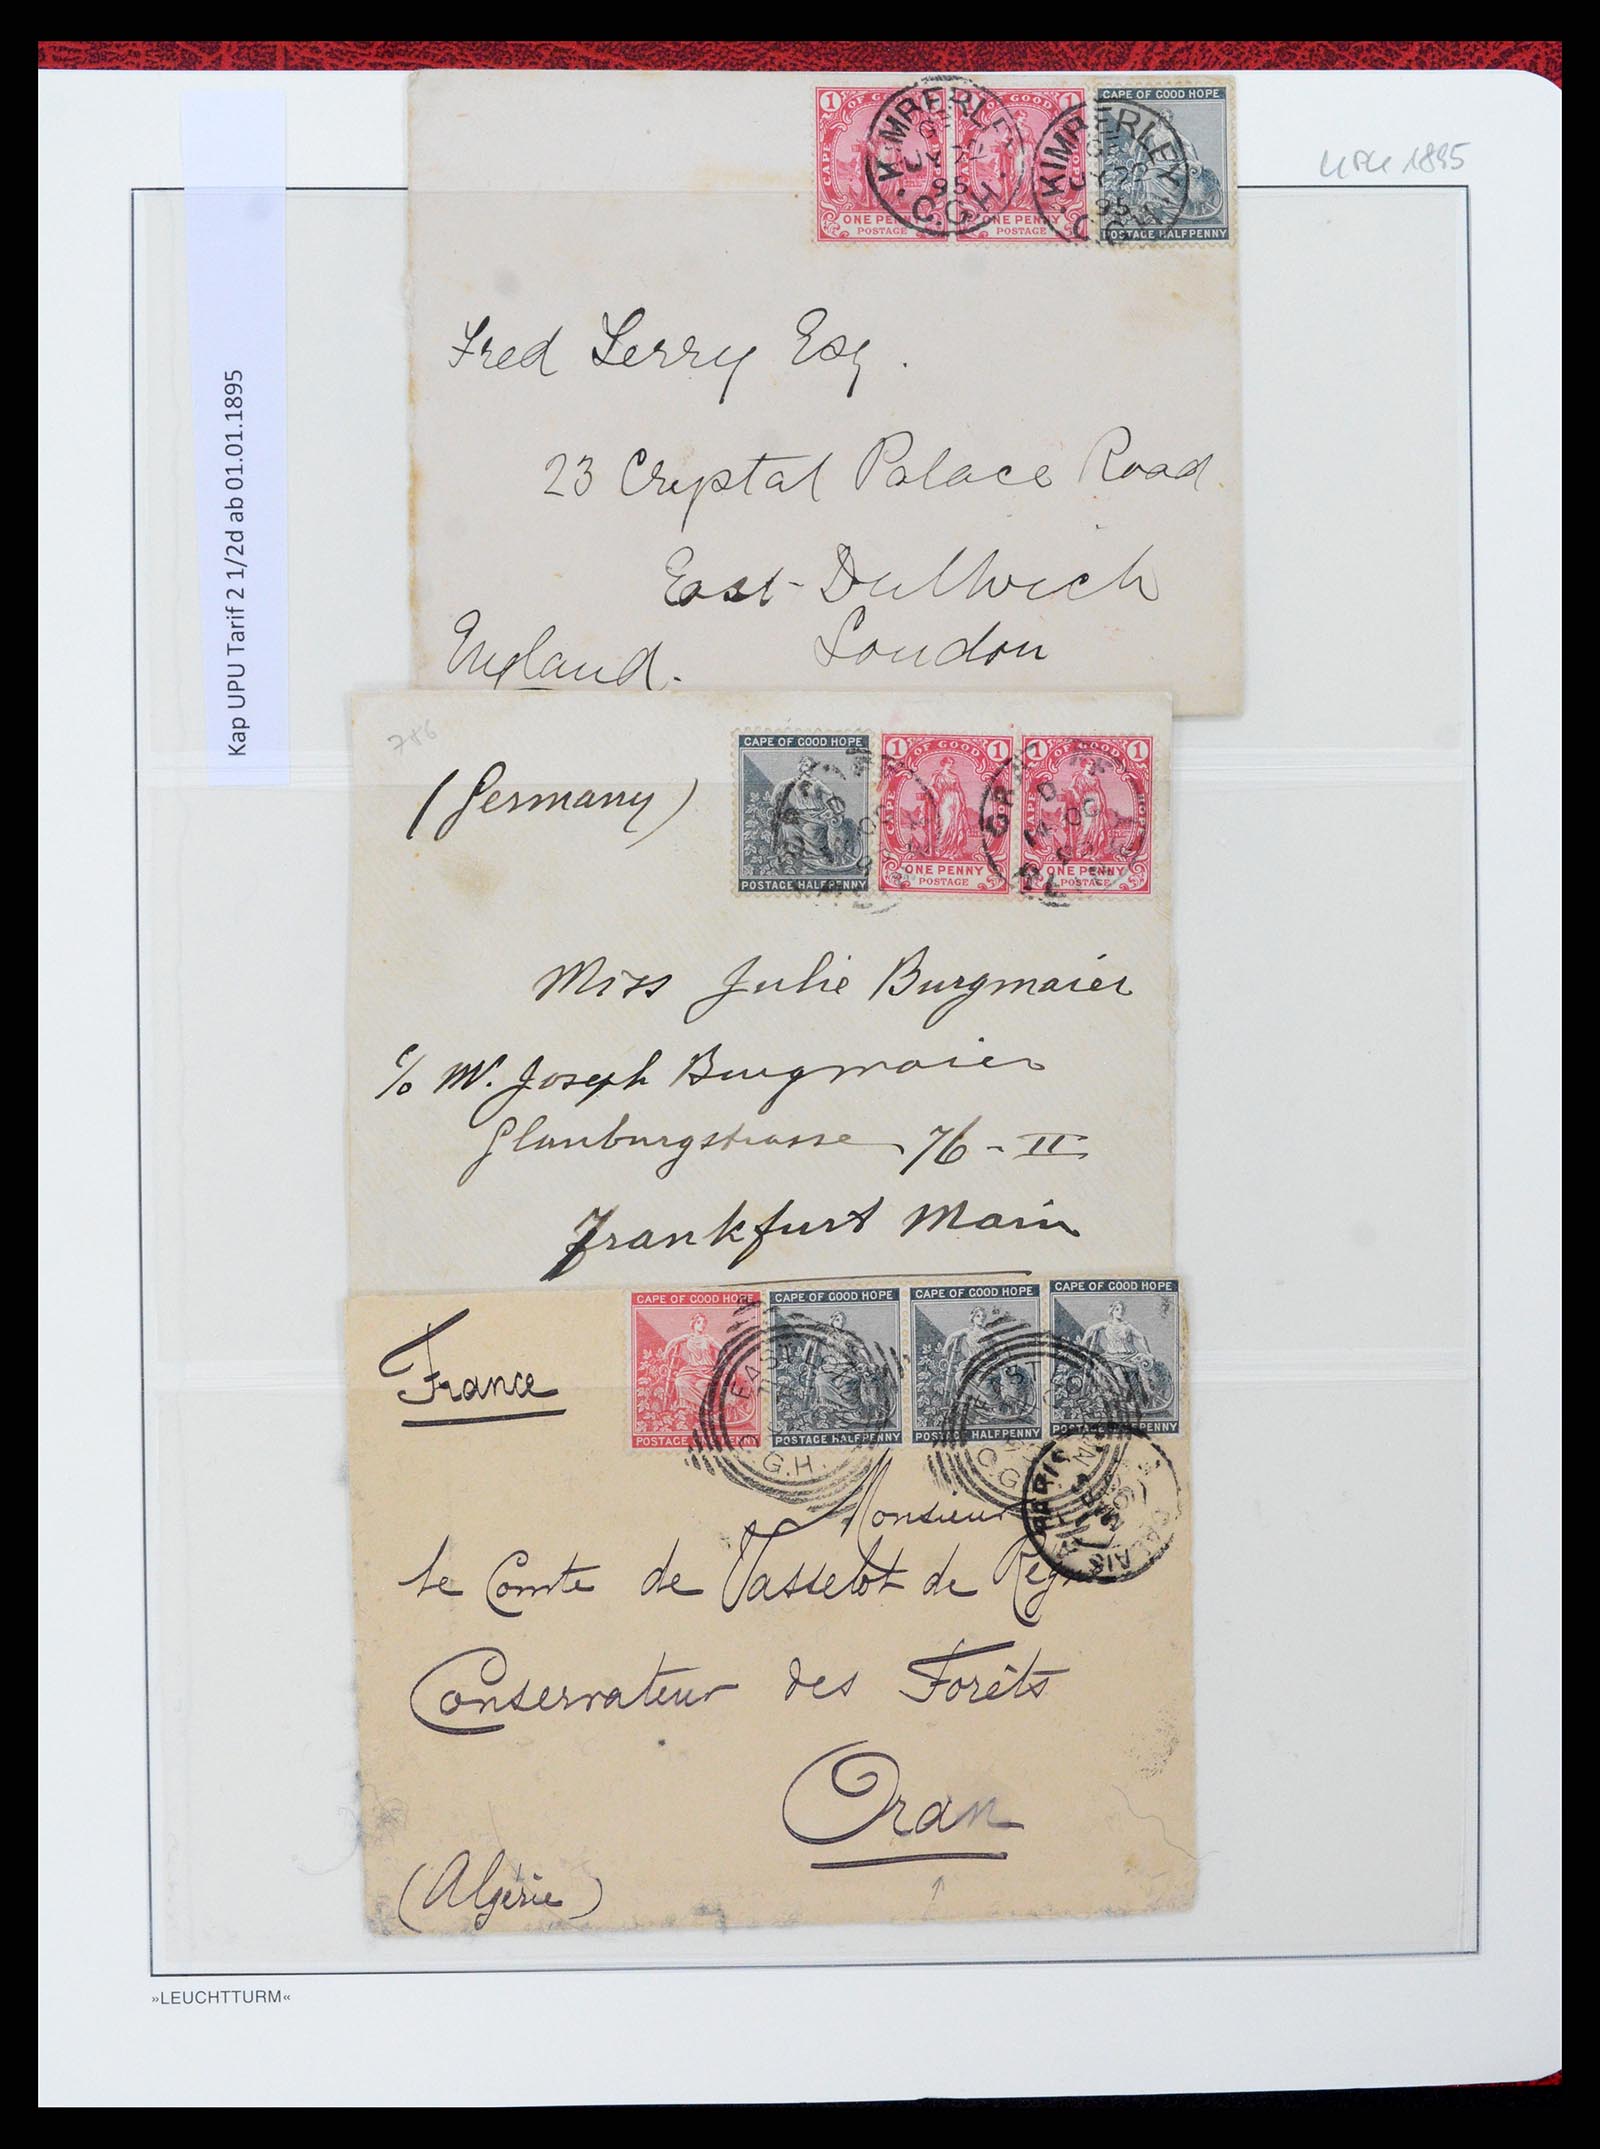 UPU 1895
Kap UPU Tarif 2 1/2d ab 01.01.1895
1 OF GOOD
CAPE
ONE PENNY
POSTAGE
OF GOOD 1
ONE PENNY
POSTAGE
CAPE OF GOOD HOPE
POSTAGE HALFPENNY
KIMBERLEY
95
C.G.H.
KIMBERLEY
95
Fred Serry Esq.
23 Crystal Palace Road
East-Dulwich
London
England.
786
(Germany)
CAPE OF GOOD HOPE
POSTAGE HALFPENNY
1 OF GOOD 1
CAPE
ONE PENNY
POSTAGE
1
CAPE
ONE PENNY
POSTAGE
Miss Julie Burgmaier
c/o Mr. Joseph Burgmaier
Glauburgstrasse 76 - II
Frankfurt Main
France
CAPE OF GOOD HOPE
POSTAGE ONE PENNY
CAPE OF GOOD HOPE
POSTAGE HALFPENNY
CAPE OF GOOD HOPE
POSTAGE HALFPENNY
CAPE OF GOOD HOPE
POSTAGE HALFPENNY
EAST
G.H.
EAST
Monsieur
le Comte de Vasselot de
Conservateur des Forêts
Oran
(Algérie)
»LEUCHTTURM«